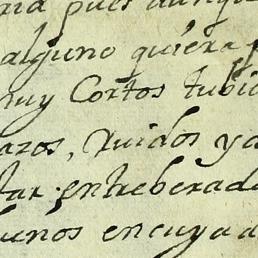 pues aunq
alguno quiera
muy Cortos tubie
azos, Ruidos ya
tar entreberada
uenos en cuya a